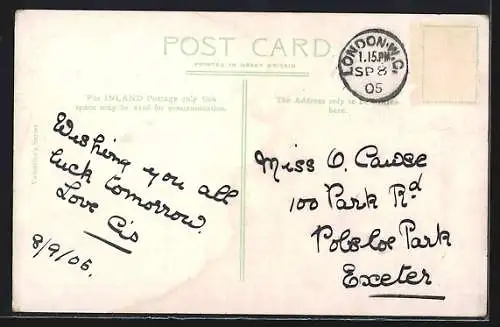 POST CARD
PRINTED IN GREAT BRITAIN
LONDON. W.C.
1.15.PM
SP 8
05
For INLAND Postage only this
space may be used for communication.
The Address only to be written
here.
Valentine's Series
Wishing you all
luck tomorrow.
Love Cis
8/9/05.
Miss O. Cawse
100 Park Rd
Polsloe Park
Exeter